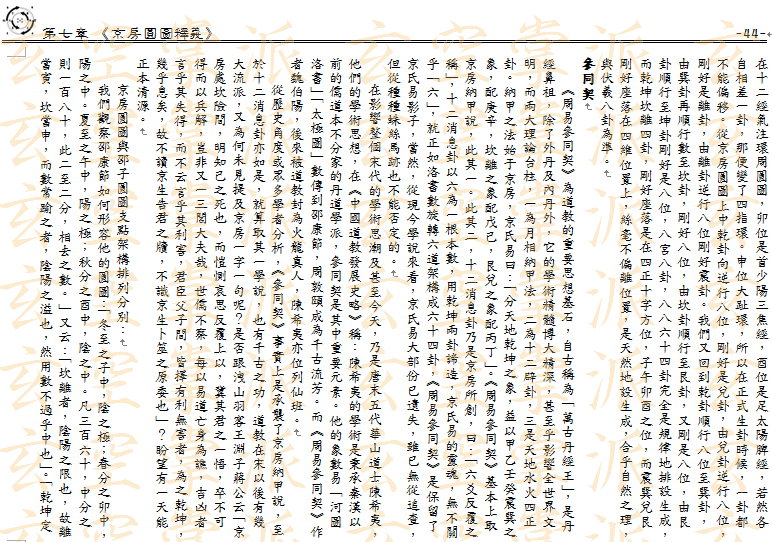 第七章 《京房圓圖釋義》
-44-
在十二經氣注環周圓圖，卯位是首少陽三焦經，酉位是足太陽脾經，若然各
自相差一卦，那便變了四指環。申位大趾環，所以在正式生卦時候，一卦都
不能偏移。從京房圓圖上中乾卦向逆行八位，剛好是兌卦，由兌卦逆行八位，
剛好是離卦，由離卦逆行八位剛好震卦。我們又回到乾卦順行八位至巽卦，
由巽卦再順行數至坎卦，剛好八位，由坎卦順行至艮卦，又剛是八位，由艮
卦順行至坤卦剛好是八位，八宮八卦，八八六十四卦完全是規律地排設生成，
而乾坤坎離四卦，剛好座落是在四正十字方位，子午卯酉之位，而震巽兌艮
剛好座落在四維位置上，絲毫不偏離位置，是天然地設生成，合乎自然之理，
與伏羲八卦為準。
參同契
《周易參同契》為道教的重要思想基石，自古稱為「萬古丹經王」，是丹
經鼻祖，除了外丹及內丹外，它的學術精髓博大精深，甚至乎影響全世界文
明，而兩大理論台柱，一為月相納甲法，二為十二辟卦，三是天地水火四正
卦。納甲之法始于京房，京氏易曰：「分天地乾坤之象，益以甲乙壬癸震巽之
象，配庚辛，坎離之象配戊己，艮兌之象配丙丁。」《周易參同契》基本上取
京房納甲說，此其一。此其二，十二消息卦乃是京房所創，曰：「六爻反覆之
稱」，十二消息卦以六為一根本數，用乾坤兩卦締造，京氏易的靈魂，無不關
乎「六」，就正如洛書數旋轉六道架構成六十四卦，《周易參同契》是保留了
京氏易影子，當然，從現今學說來看，京氏易大部份已遺失，雖已無從追查，
但從種種蛛絲馬跡也不能否定的。
在影響整個宋代的學術思潮及甚至今天，乃是唐末五代華山道士陳希夷，
他們的學術思想，在《中國道教發展史略》稱：陳希夷的學術是秉承秦漢以
前的儒道本不分家的丹道學派，參同契是其中重要元素。他的象數易「河圖
洛書」「太極圖」數傳到邵康節，周敦頤成為千古流芳。而《周易參同契》作
者魏伯陽，後來被道教封為火龍真人，陳希夷亦位列仙班。
從歷史角度或眾多學者分析，《參同契》事實上是承襲了京房納甲說，至
於十二消息卦亦如是，就算取其一學說，也有千古之功，道教在末以後有幾
大流派，又為何未見提及京房一字一句呢？是否跟洩山羽客王淵子蔣公云「京
房處坎險間，明知己之死也，而惓惻哀思反覆上以，冀其君之一悟，卒不可
得而以兵解，豈非又一三閭大夫哉，世儒不察，每以易道亡身為譏，吉凶者
言乎其失得，而不云言乎其利害，君臣父子間，皆擇有利無害者，為之乾坤，
幾乎息矣，故不讀京生告君之牘，不識京生卜筮之原委也」？盼望有一天能
正本清源。
京房圓圖與邵子圓圖支點架構排列分別：
我們觀察邵康節如何形容他的圓圖：「冬至之子中，陰之極；春分之卯中，
陽之中。夏至之午中，陽之極；秋分之酉中，陰之中。凡三百六十，中分之
則一百八十，此二至二分，相去之數。」又云：「坎離者，陰陽之限也，故離
當寅，坎當申，而數常踰之者，陰陽之溢也，然用數不過乎中也」。「乾坤定